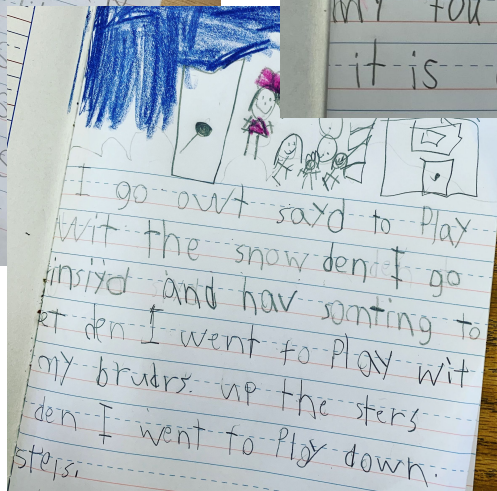 my fou
it is
I go owt sayd to Play
wit the snow den I go
insiyd and hav somting to
et den I went to Play wit
my brudrs. up the sters
den I went to Play down.
sters.